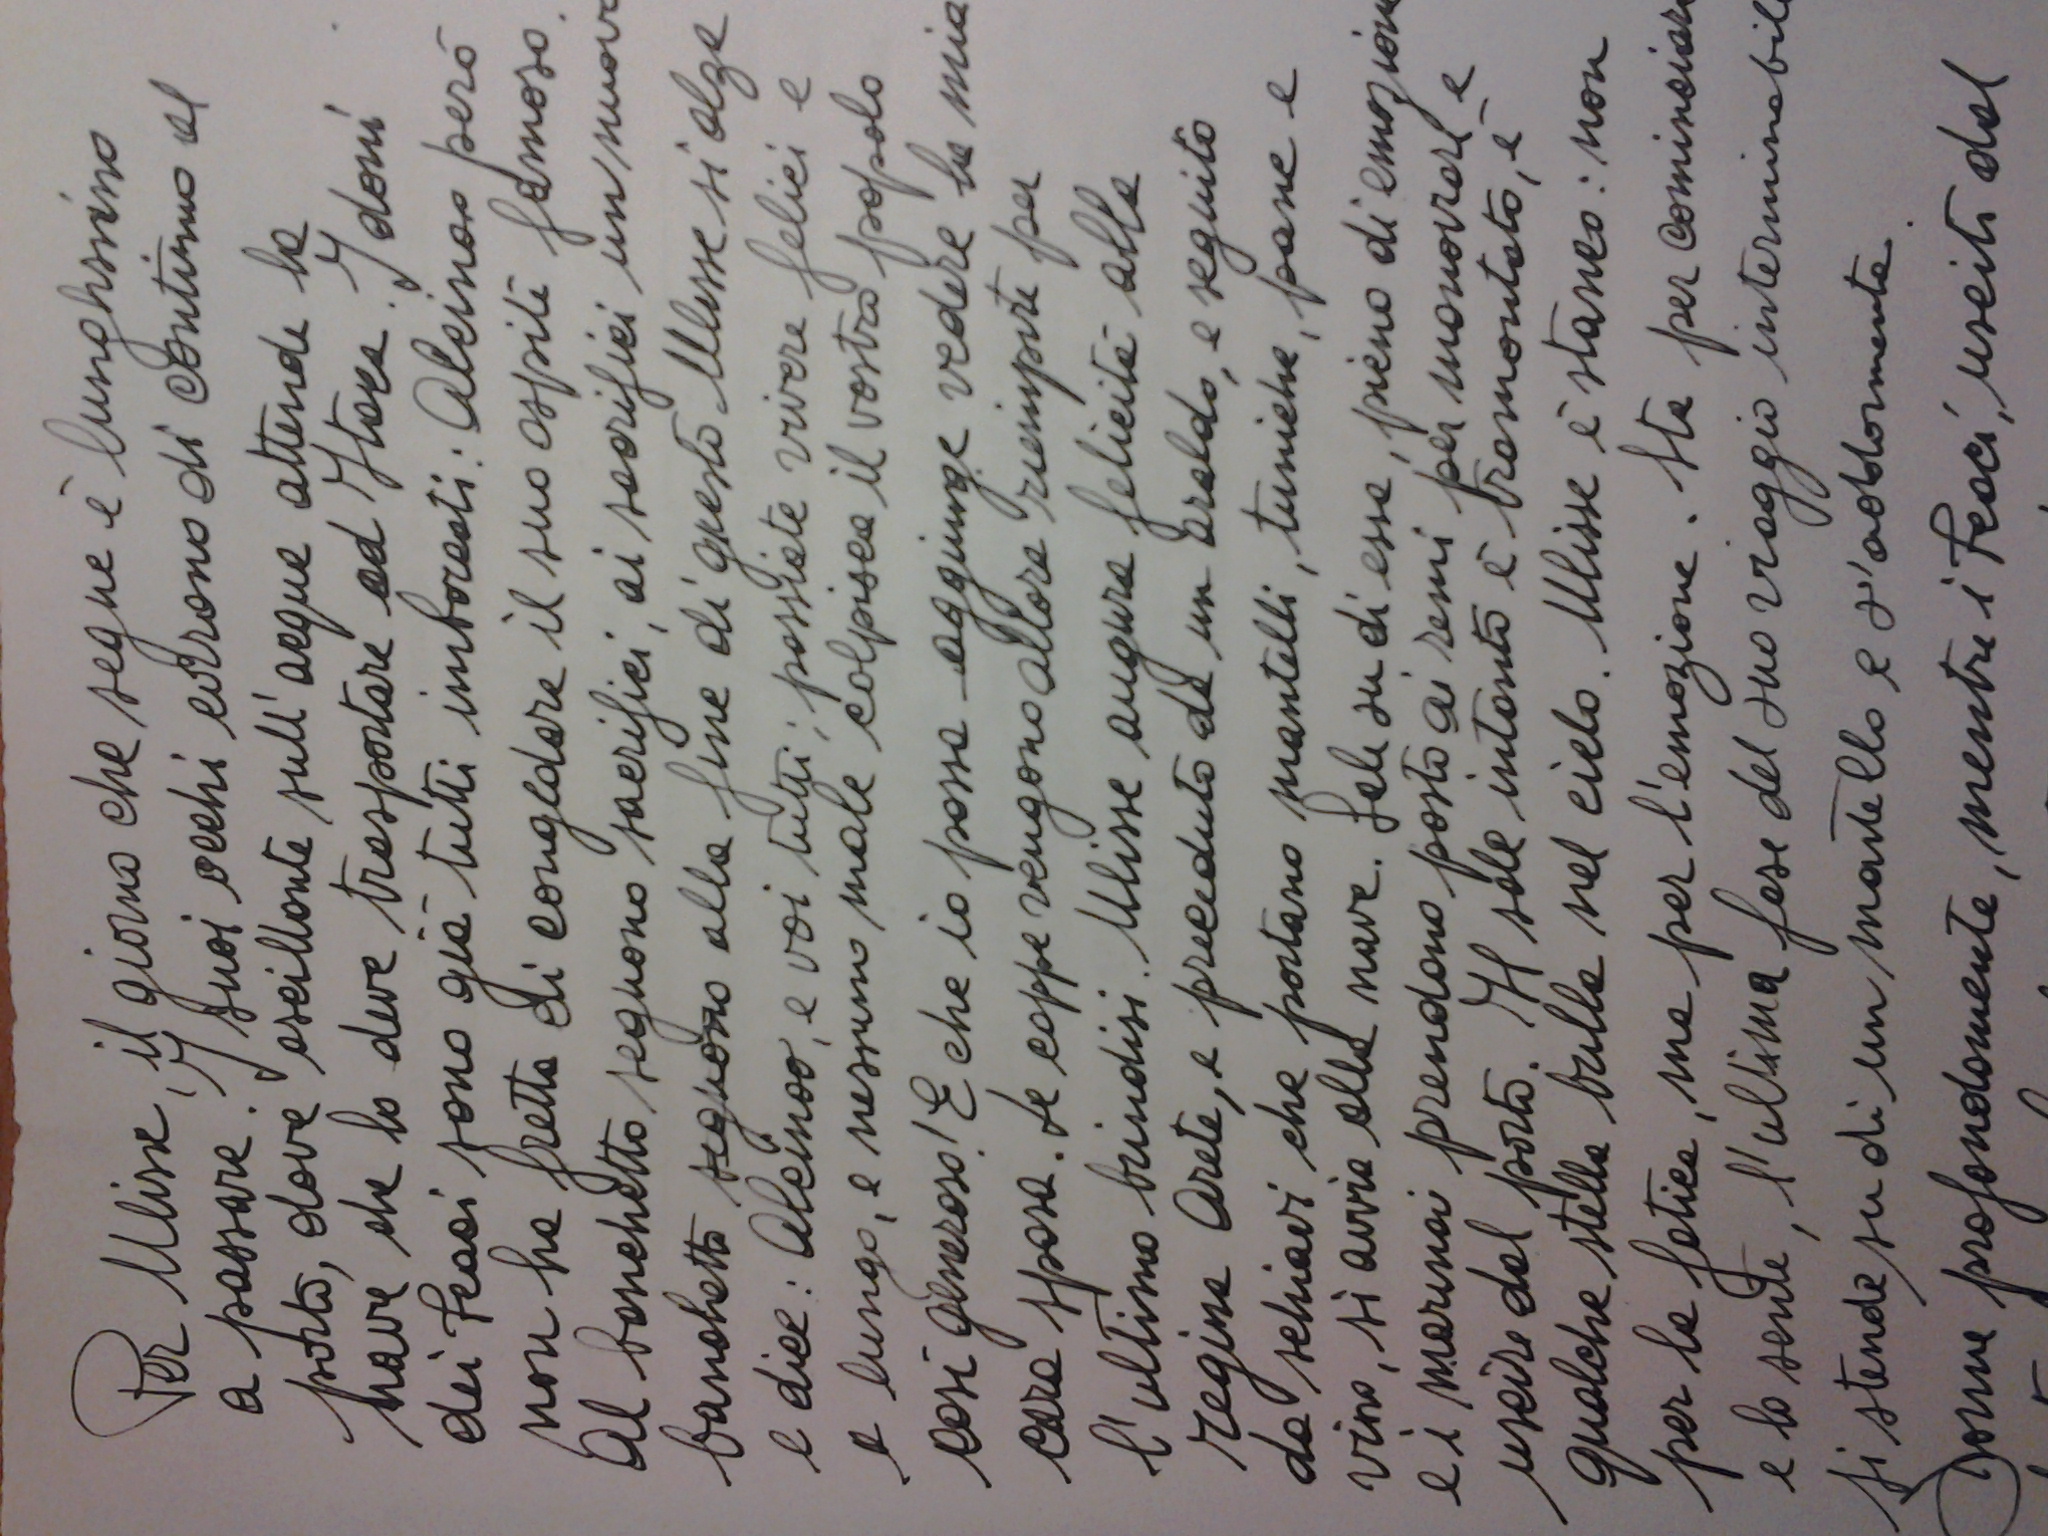 Per Ulisse, il giorno che segue è lunghissimo
a passare. I suoi occhi corrono di continuo al
porto, dove oscillante sull'acque attende la
nave che lo deve trasportare ad Itaca. I doni
dei Feaci sono già tutti imbarcati: Alcinoo però
non ha fretta di congedare il suo ospite famoso.
Al banchetto seguono sacrifici, ai sacrifici un nuovo
banchetto seguono alla fine di questo Ulisse si alza
e dice: Alcinoo, e voi tutti, possiate vivere felici e
a lungo, e nessun male colpisca il vostro popolo
così generoso! E che io possa - aggiunge vedere la mia
cara sposa. Le coppe vengono allora riempite per
l'ultimo brindisi. Ulisse augura felicità alla
regina Arete, e preceduto da un araldo, e seguito
da schiavi che portano mantelli, tuniche, pane e
vino, si avvia alla nave. Sale su di essa, pieno di emozione
e i marinai prendono posto ai remi per manovrare e
uscire dal porto. Il sole intanto è tramontato, e
qualche stella brilla nel cielo. Ulisse è stanco: non
per la fatica, ma per l'emozione. Sta per cominciare
e lo sente, l'ultima fase del suo viaggio interminabile
Si stende su di un mantello e s'addormenta.
Dorme profondamente, mentre i Feaci, usciti dal